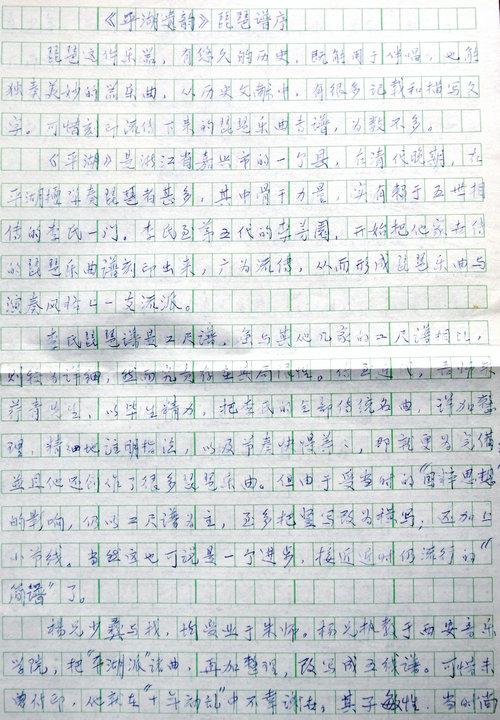 《平湖遗韵》琵琶谱序
琵琶这件乐器，有悠久的历史，既能用于伴唱，也能
独奏美妙的器乐曲，从历史文献中，有很多记载和描写文
字。可惜刻印流传下来的琵琶乐曲专谱，为数不多。
《平湖》是浙江省嘉兴市的一个县，在清代晚期，在
平湖擅弹奏琵琶者甚多，其中骨干力量，实有赖于五世相
传的李氏一门。李氏至第五代的李芳園，开始把他家世传
的琵琶乐曲谱刻印出来，广为流传，从而形成琵琶乐曲与
演奏风格上一支流派。
李氏琵琶谱是工尺谱，虽与其他几家的工尺谱相比，
则较为详细，然而
荇青先生，以毕生精力，把李氏的全部传统名曲，详加整
理，精细地注明指法，以及节奏快慢等；，那就更为完备，
并且他还创作了很多琵琶乐曲。但由于受当时的“国粹思想”
的影响，仍以工尺谱为主，至多把竖写改为横写；还加上
小节线。当然这也可说是一个进步，接近近时仍流行的“
简谱”了。
杨兄少彝与我，均受业于朱师。杨兄执教于西安音乐
学院，把“平湖派”诸曲，再加整理，改写成五线谱。可惜未
曾付印，他就在“十年动乱”中不幸谢世，其子毓性，当时尚